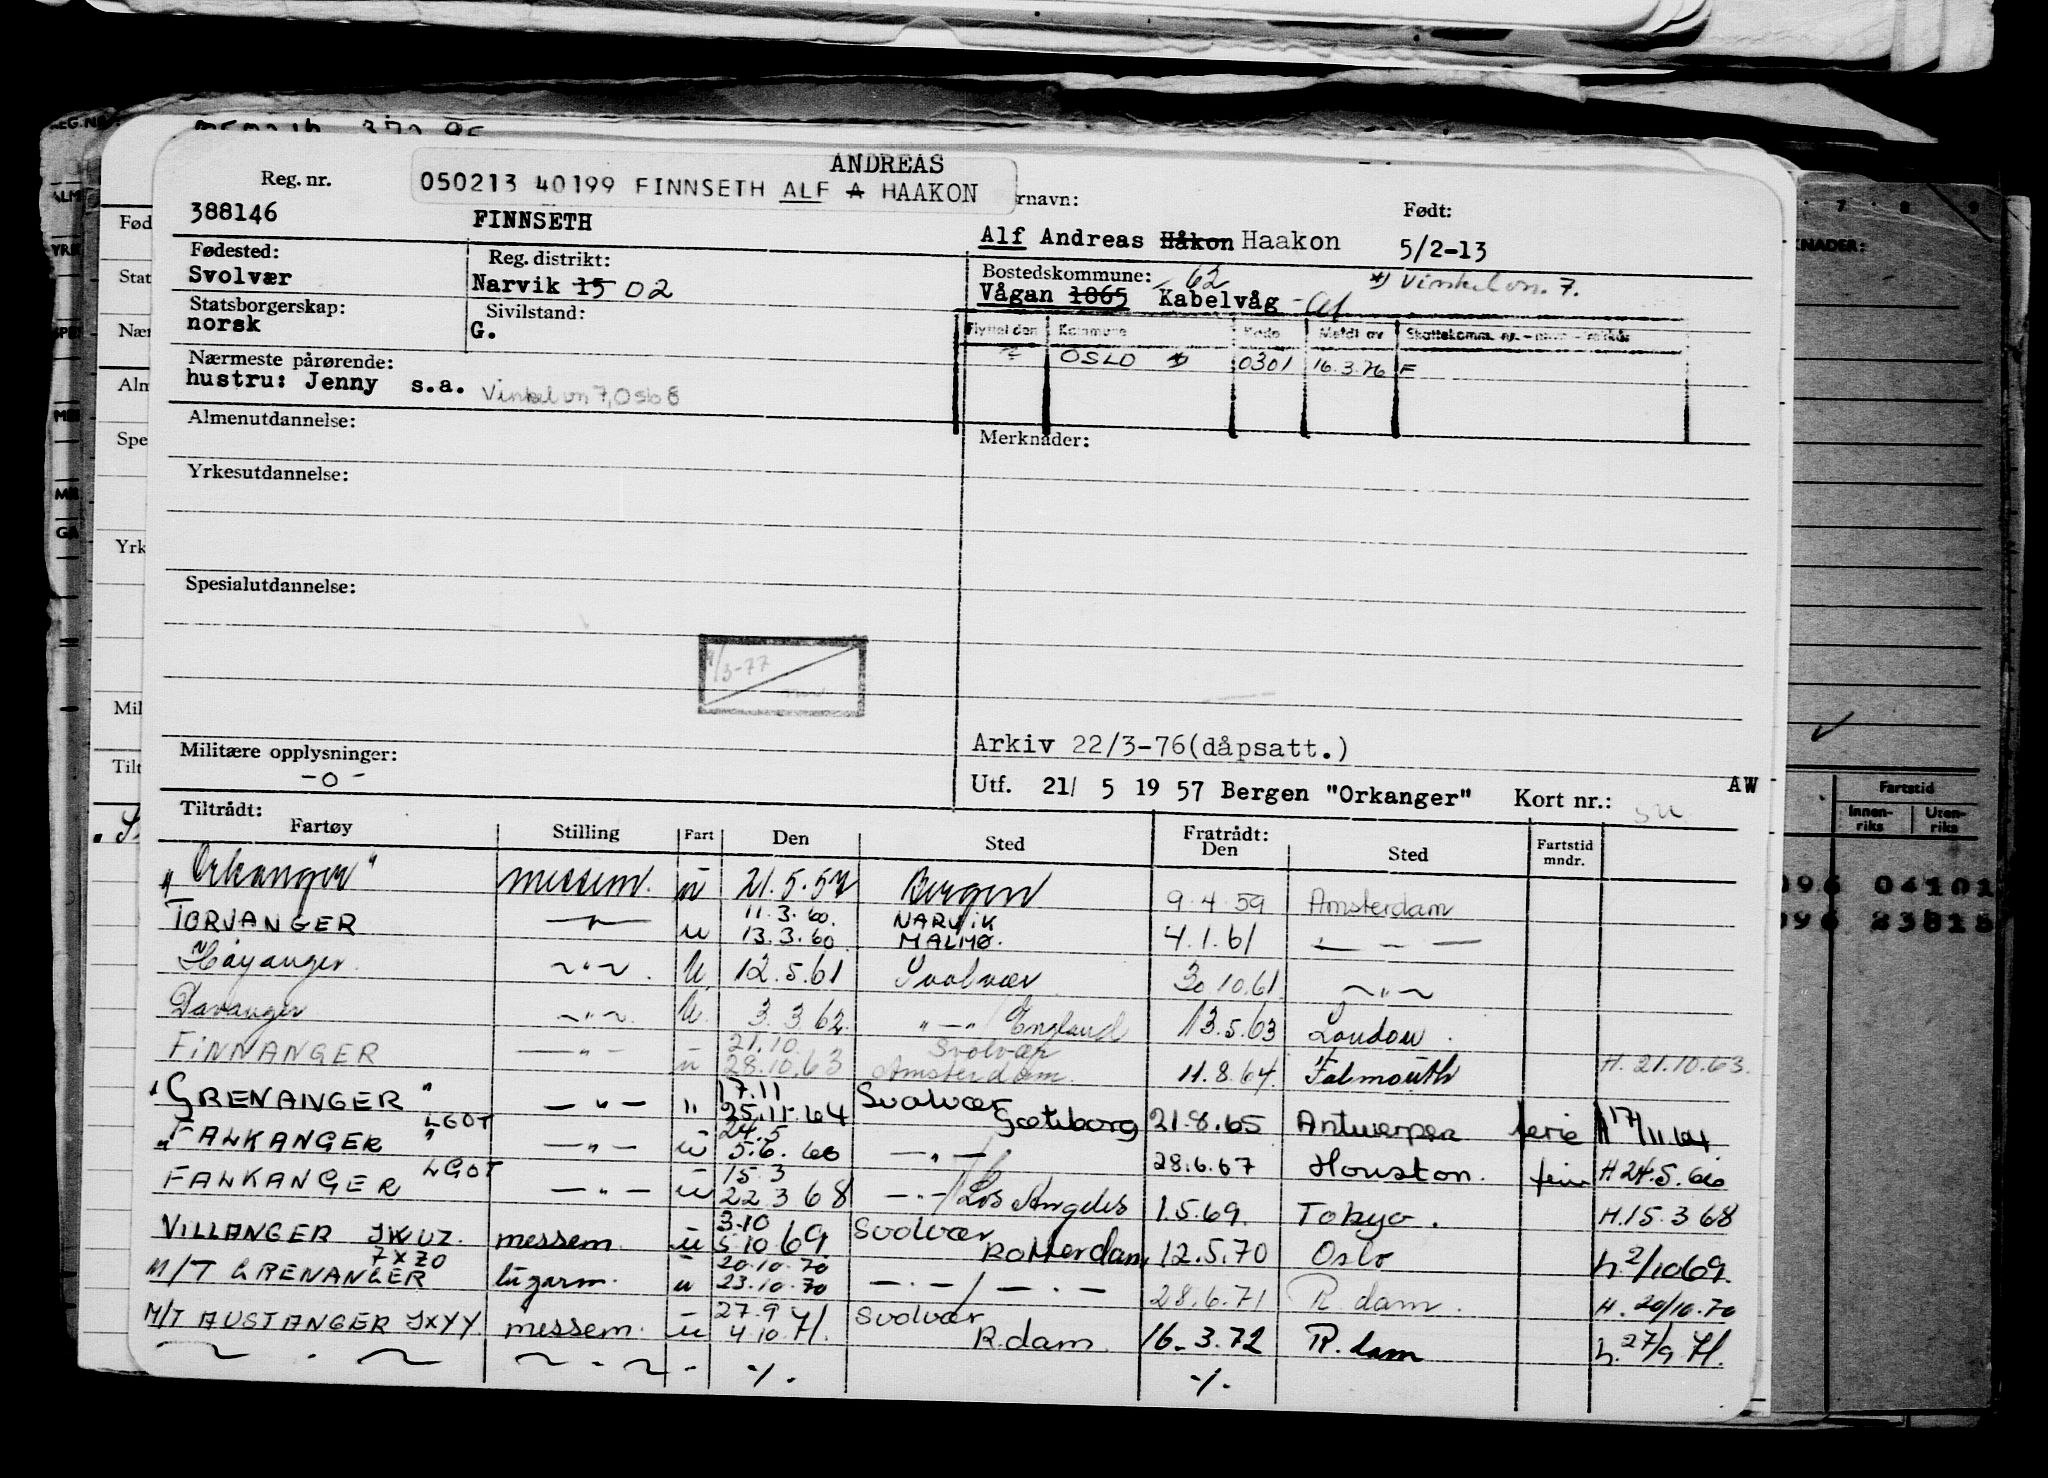 ANDREAS
050213 40199 FINNSETH ALF A HAAKON
Reg. nr. rnavn: Født:
388146 FINNSETH Alf Andreas Håkon Haakon 5/2-13
Fødested: Reg. distrikt: Bostedskommune: 62 *) Vinkelvn. 7.
Svolvær Narvik 15 02 Vågan 1865 Kabelvåg
Statsborgerskap: Sivilstand:
norsk G.
Flyttet den Kommune Kode Meldt av
OSLO *) 0301 16.3.76 F
Nærmeste pårørende:
hustru: Jenny s.a. Vinkelvn 7, Oslo 8
Almenutdannelse: Merknader:
Yrkesutdannelse:
Spesialutdannelse:
/3-77
Arkiv 22/3-76(dåpsatt.)
Militære opplysninger:
-0-
Utf. 21/ 5 19 57 Bergen "Orkanger" Kort nr.: AW
Tiltrådt: Fratrådt:
Fartøy Stilling Fart Den Sted Den Sted Fartstid mndr.
"Orkanger" messem. u 21.5.57 Bergen 9.4.59 Amsterdam
TORJANGER —"— u 11.3.60. 13.3.60 NARVIK MALMØ. 4.1.61 — - —
Høyanger. ~"~. U. 12.5.61 Svolvær 30.10.61 ~"~
Davanger ~"~. U. 3.3.62. "—"/England 13.5.63 London.
FINNANGER —"— u 21.10. 28.10.63 Svolvær Amsterdam. 11.8.64. Falmouth H. 21.10.63.
"GRENANGER" —"— " 17.11 25.11.64 Svolvær Gøteborg 21.8.65 Antwerpen ferie H 17/11.64.
"FALKANGER" LGOT —"— u 24.5 5.6.66 —"—/ 28.6.67 Houston. H 24.5.66
FALKANGER LGOT —"— u 15.3 22.3 68 —"—/Los Angeles 1.5.69. Tokyo. H.15.3 68
VILLANGER JWUZ. messem. u 3.10 5.10 69. Svolvær Rotterdam, 12.5.70 Oslo h. 2/10 69.
M/T GRENANGER 7XZO lugarm. u 20.10.70 23.10.70 —.—/—.— 28.6.71 R dam. H. 20/10.70
M/T AUSTANGER JXYY. messem. u 27.9 4.10.71. Svolvær R.dam. 16.3.72 R.dam h. 27/9 71.
~ . ~ ~ - ~ - -/. -/.
Fød
Stat
Nær
Alm
Spe
Yrk
Mil
Tilt
7 8 9
KNADER:
Fartstid
Innen-
riks
Uten-
riks
096 04101
096 23815